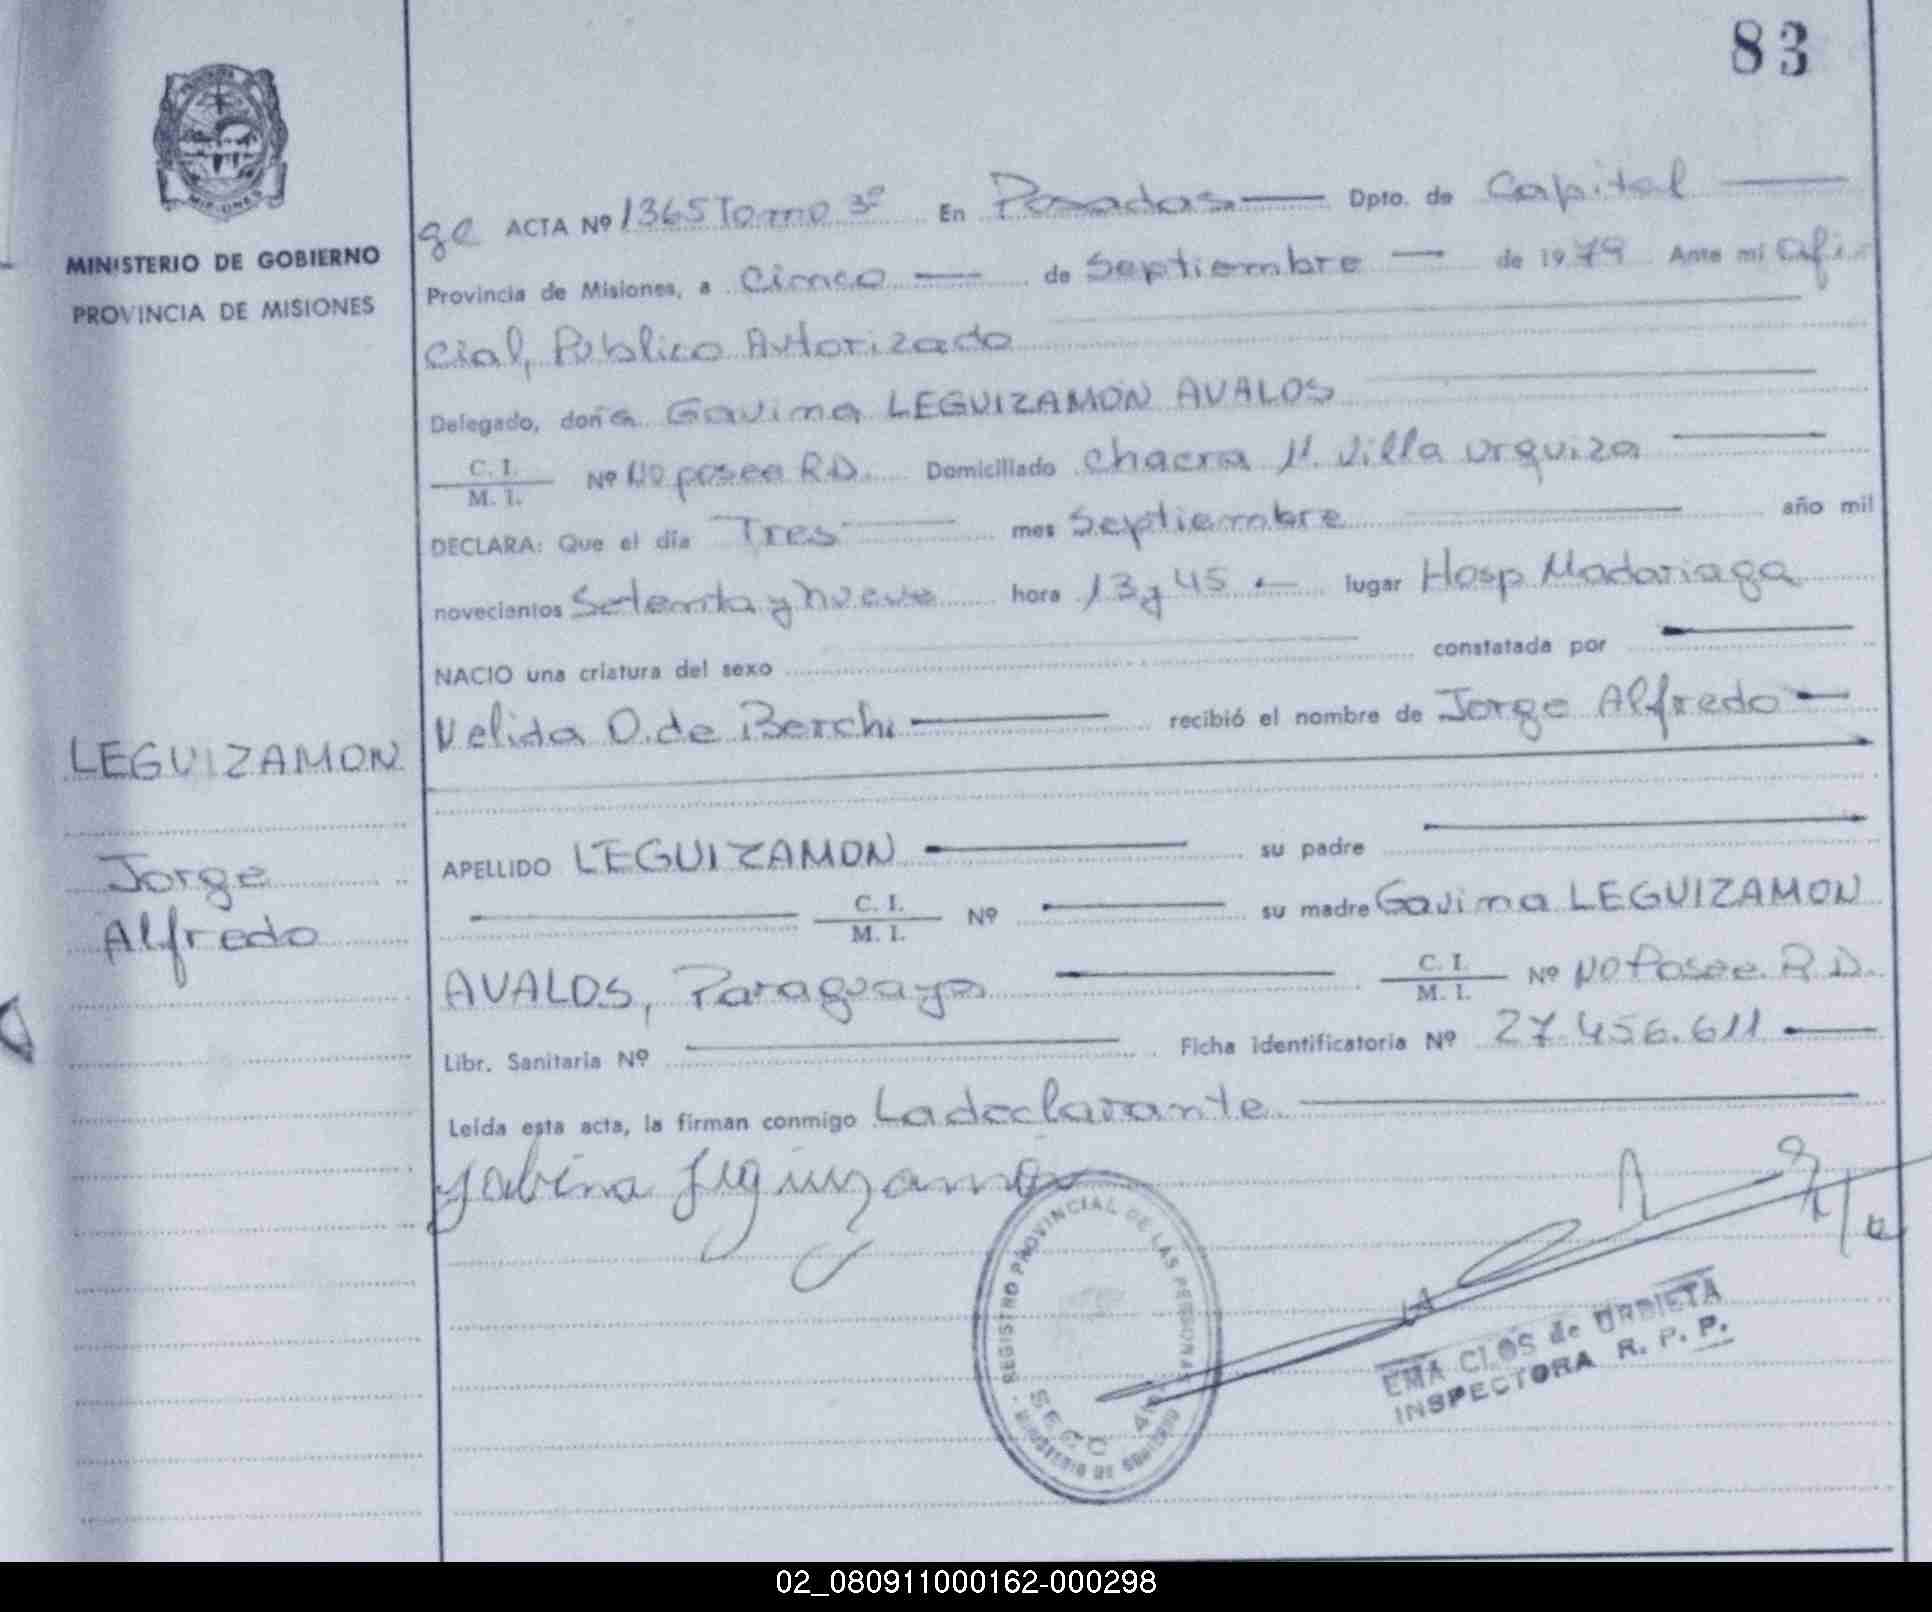 83
MINISTERIO DE GOBIERNO
PROVINCIA DE MISIONES
ge ACTA Nº 1365 Tomo 3º En Posadas Dpto. de Capital
Provincia de Misiones, a Cinco de Septiembre de 1979 Ante mi Ofi
cial, Público Autorizado
Delegado, doña Gavina LEGUIZAMON AVALOS
C. I. / M. I. Nº No posee R.D. Domiciliado chacra 11. Villa urquiza
DECLARA: Que el día Tres mes Septiembre año mil
novecientos Setenta y nueve hora 13 y 45 lugar Hosp Madariaga
NACIO una criatura del sexo constatada por
Velida O. de Berchi recibió el nombre de Jorge Alfredo
LEGUIZAMON
Jorge
Alfredo
APELLIDO LEGUIZAMON su padre
C. I. / M. I. Nº su madre Gavina LEGUIZAMON
AVALOS, Paraguaya C. I. / M. I. Nº No Posee R.D.
Libr. Sanitaria Nº Ficha identificatoria Nº 27.456.611
Leída esta acta, la firman conmigo La declarante
Gabina Leguizamon
REGISTRO PROVINCIAL DE LAS PERSONAS
SECC
MINISTERIO DE GOBIERNO
EMA CLOS de URBIETA
INSPECTORA R. P. P.
02_080911000162-000298